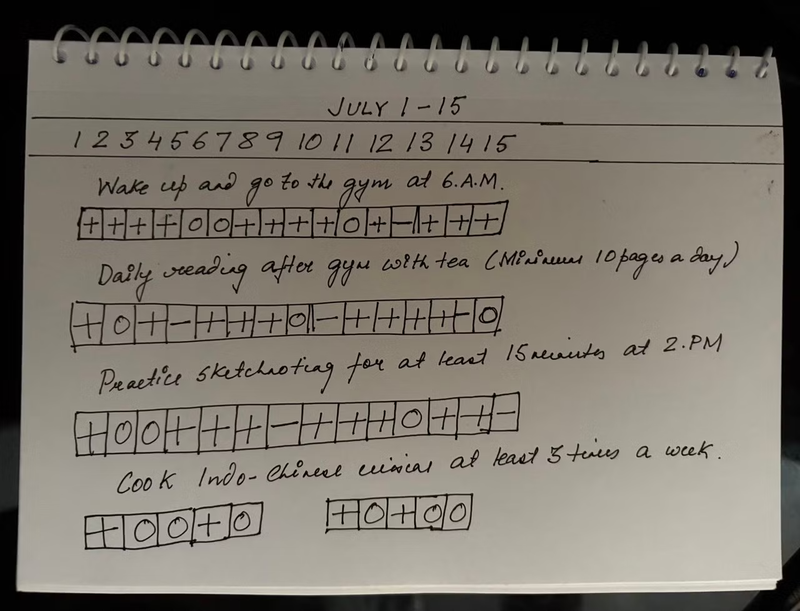 JULY 1-15
1 2 3 4 5 6 7 8 9 10 11 12 13 14 15
Wake up and go to the gym at 6.A.M.
+ + + + O O + + + + O + - + + +
Daily reading after gym with tea (Minimum 10 pages a day)
+ O + - + + + + O - + + + + - O
Practice sketchnoting for at least 15 minutes at 2.PM
+ O O + + + - + + + O + + -
Cook Indo-Chinese cuisine at least 3 times a week.
+ O O + O + O + O O